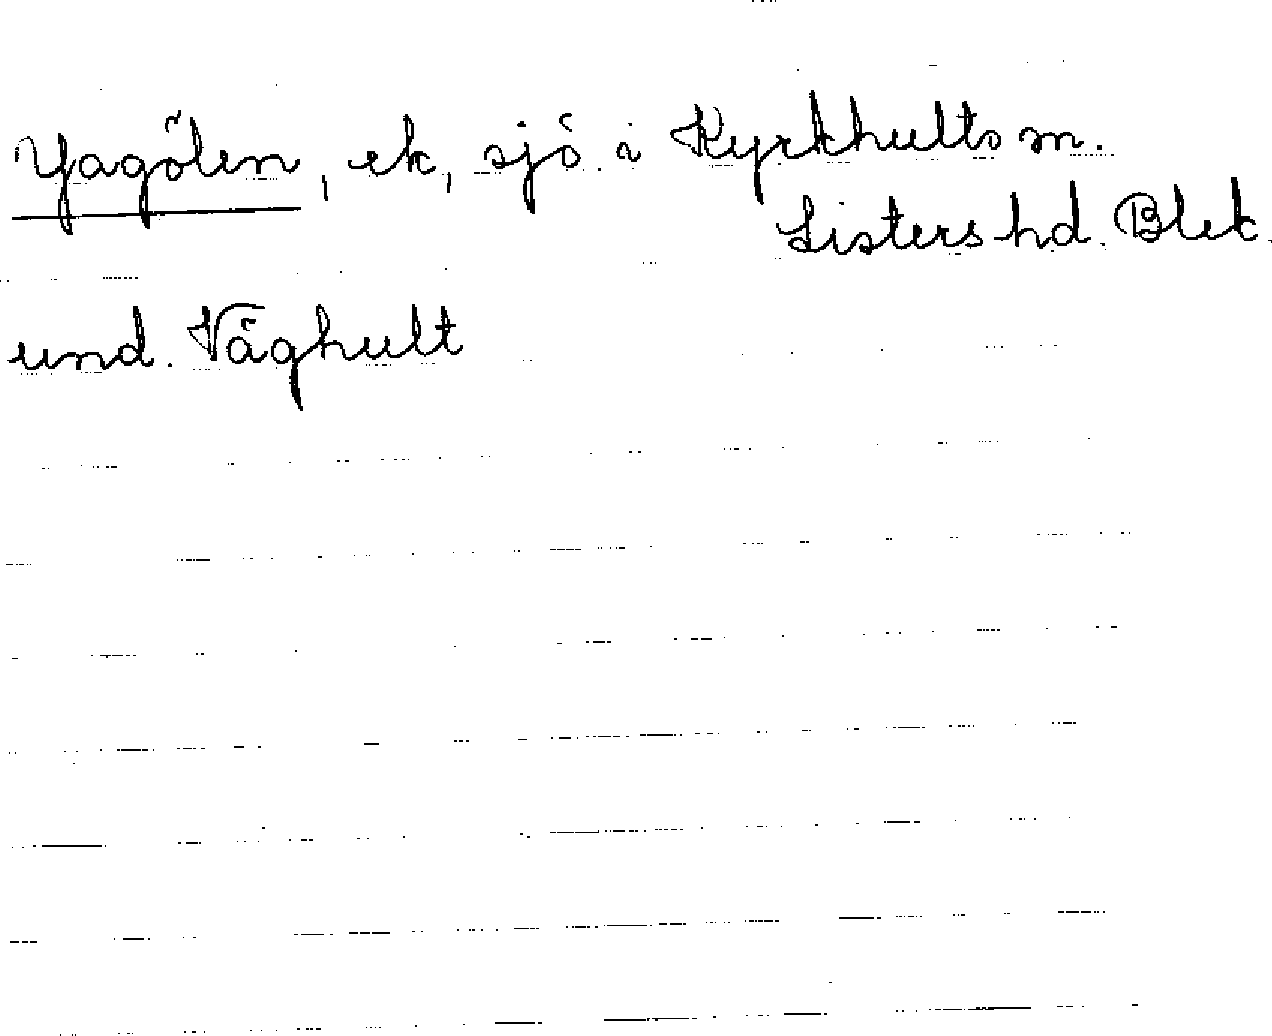 Yagölen, ek, sjö i Kyrkhults sn.
Listers hd. Blek.
und. Våghult